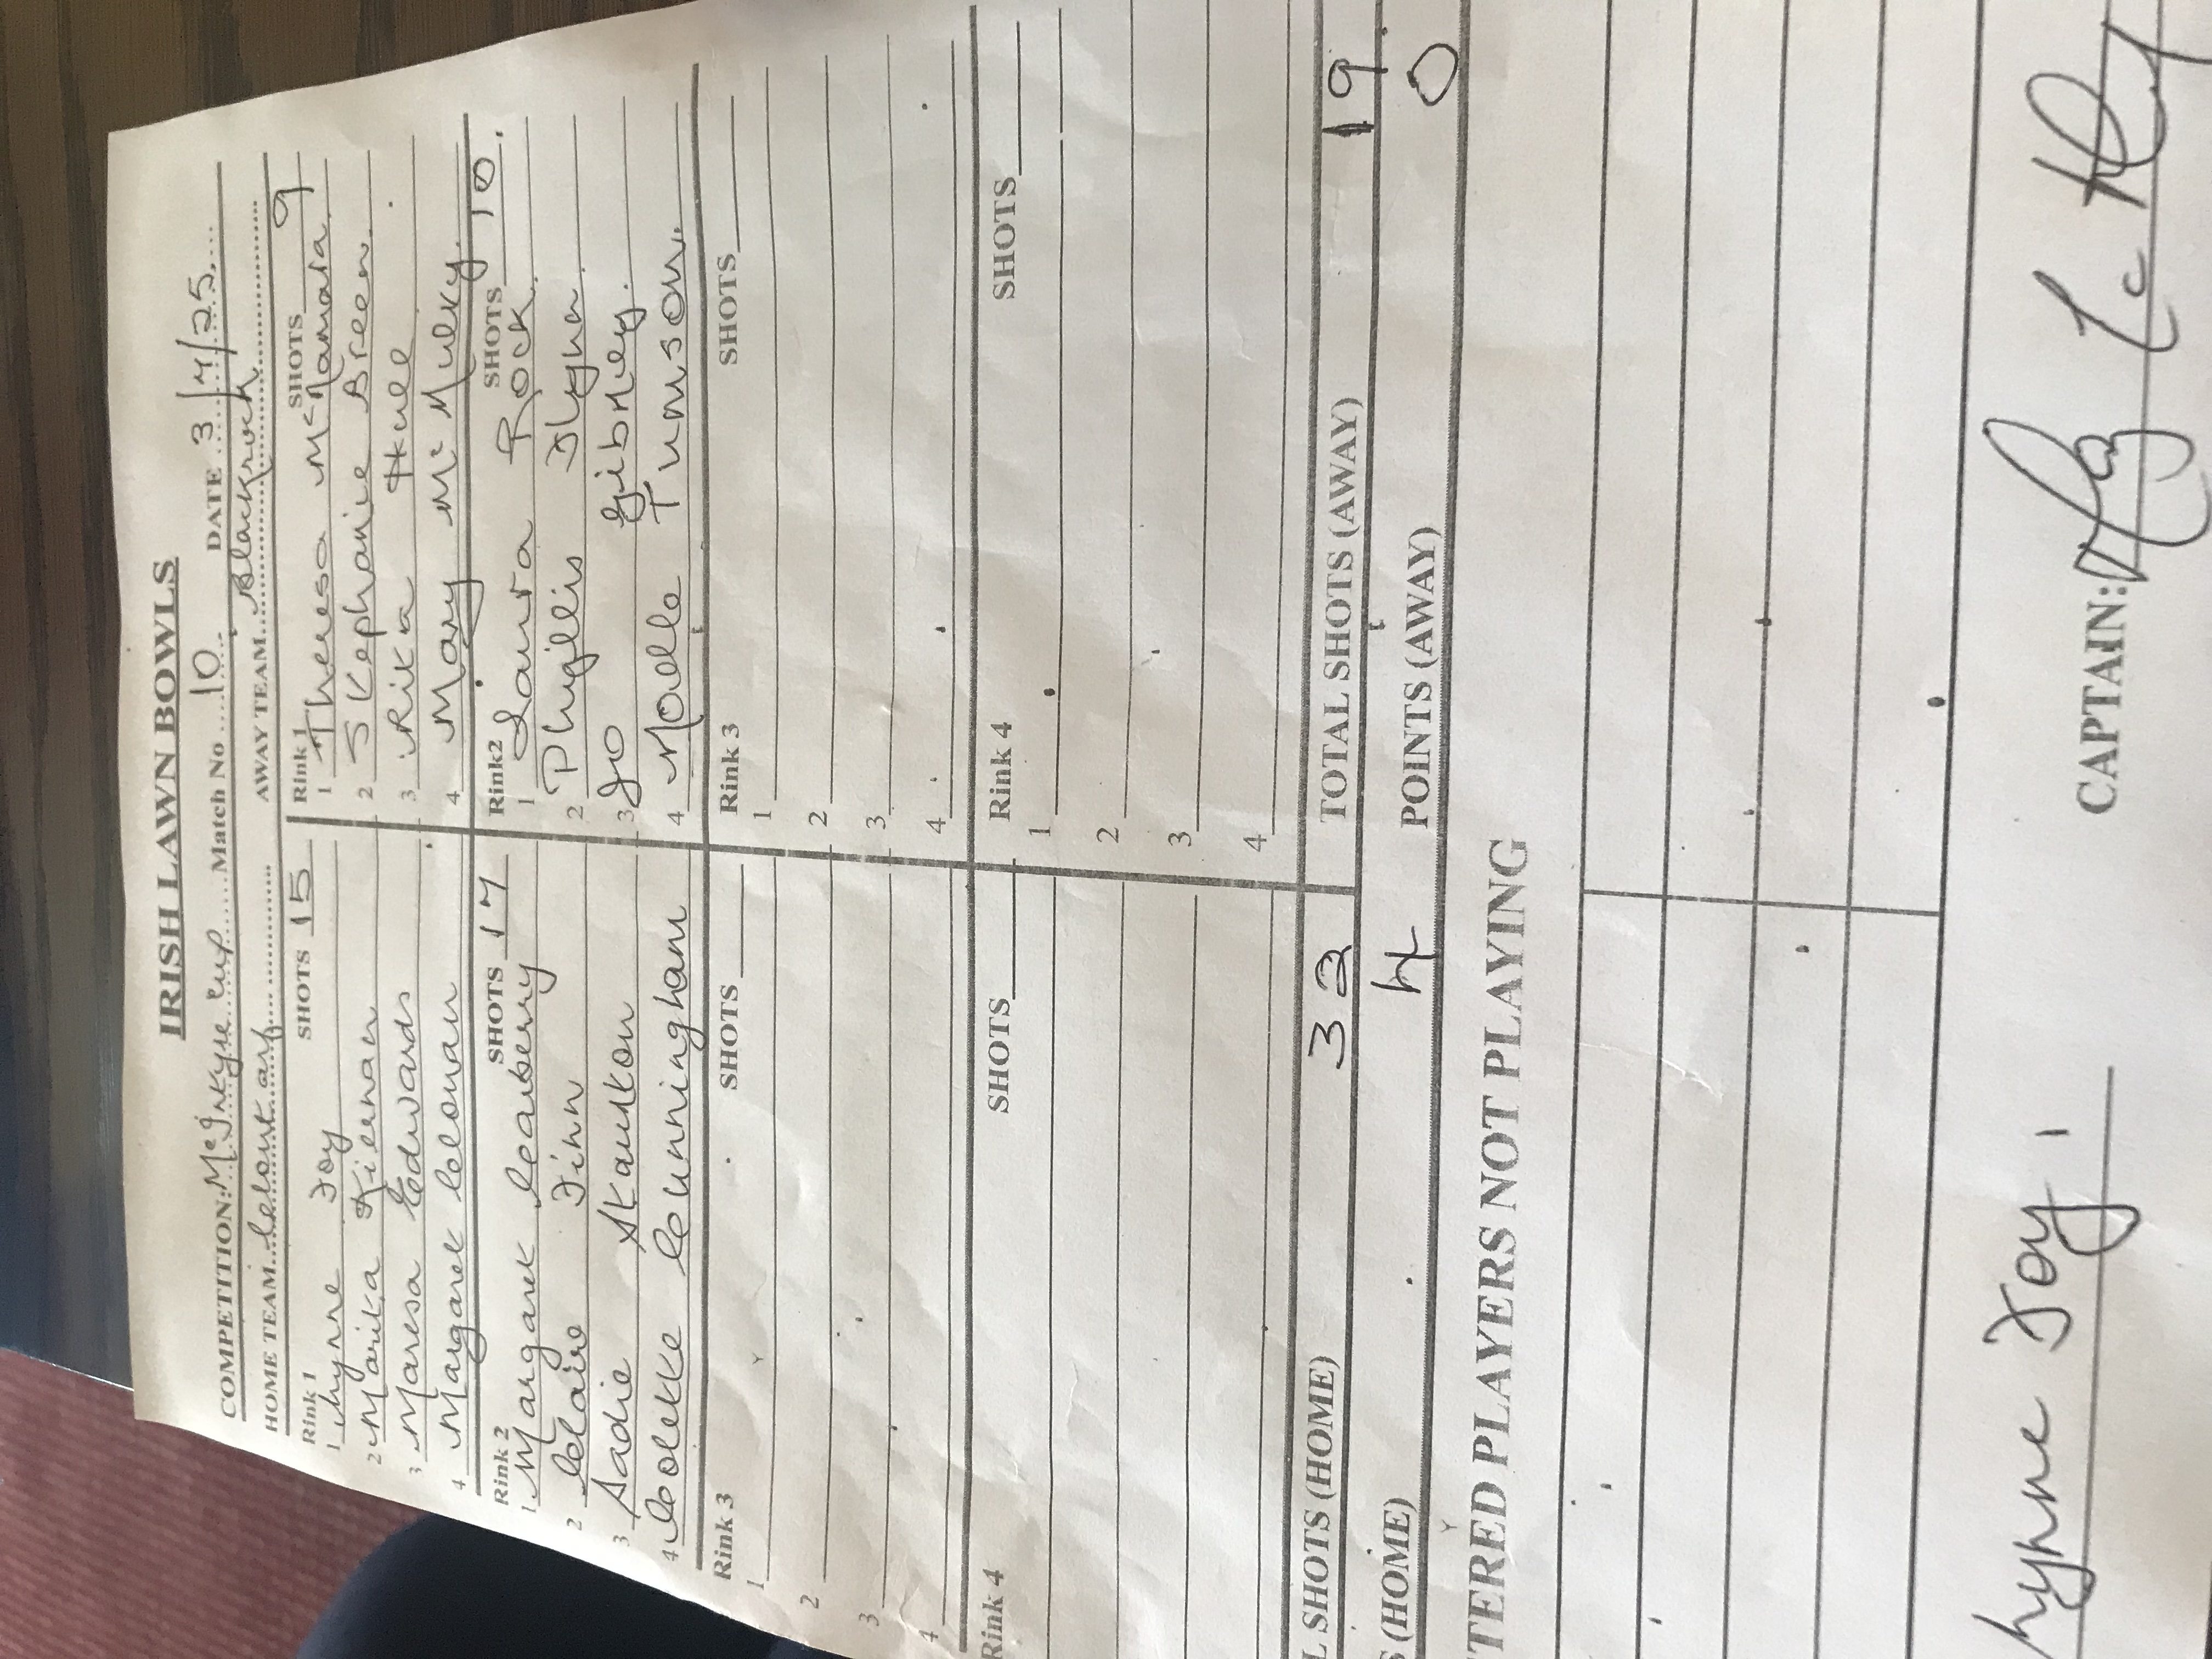 IRISH LAWN BOWLS
COMPETITION: McIntyre Cup Match No 10 DATE 3/7/25
HOME TEAM Clontarf AWAY TEAM Blackrock
Rink 1 SHOTS 15 Rink 1 SHOTS 9
1 Lynne Joy 1 Theresa McNamara
2 Marika Kiernan 2 Stephanie Breen
3 Maresa Edwards 3 Rita
4 Margaret Colonan 4 Mary Mc
Rink 2 SHOTS 17 Rink2 SHOTS 10
1 Margaret Canberry 1 Laura Rock
2 Claire Finn 2 Phyllis
3 Sadie Staunton 3 Jo Gibney
4 Colette Cunningham 4
Rink 3 SHOTS Rink 3 SHOTS
1 1
2 2
3 3
4 4
Rink 4 SHOTS Rink 4 SHOTS
1
2
3
4
L SHOTS (HOME) 32 TOTAL SHOTS (AWAY) 19
S (HOME) 4 POINTS (AWAY) 0
TERED PLAYERS NOT PLAYING
Lynne Joy CAPTAIN: